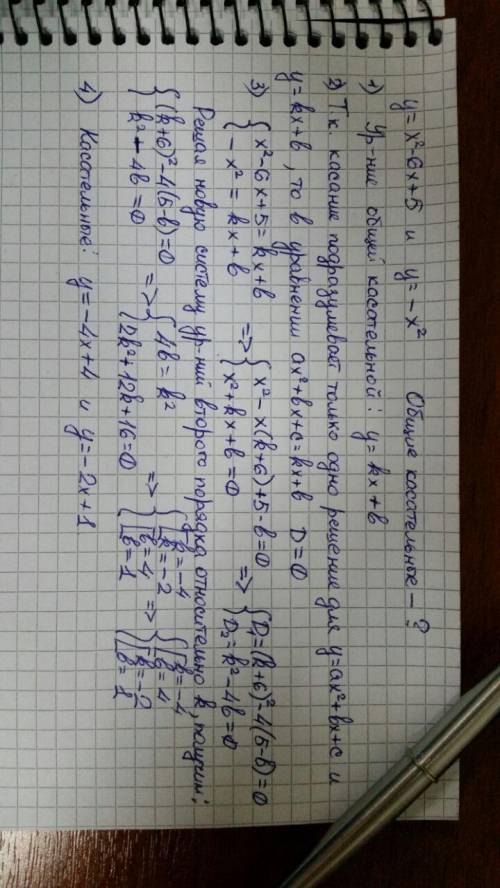 y = x² - 6x + 5 и y = -x² Общие касательные - ?
1) Ур-ние общей касательной: y = kx + b
2) Т.к. касание подразумевает только одно решение для y = ax² + bx + c и
y = kx + b, то в уравнении ax² + bx + c = kx + b D = 0
3) { x² - 6x + 5 = kx + b => { x² - x(k+6) + 5 - b = 0 => { D₁ = (k+6)² - 4(5-b) = 0
{ -x² = kx + b { x² + kx + b = 0 { D₂ = k² - 4b = 0
Решая новую систему ур-ний второго порядка относительно k, получим:
{ (k+6)² - 4(5-b) = 0 => { 4b = k² => { [ k = -4 => [ { k = -4
{ k² - 4b = 0 { 2k² + 12k + 16 = 0 [ k = -2 { b = 4
[ b = 4 { k = -2
[ b = 1 { b = 1
4) Касательные: y = -4x + 4 и y = -2x + 1